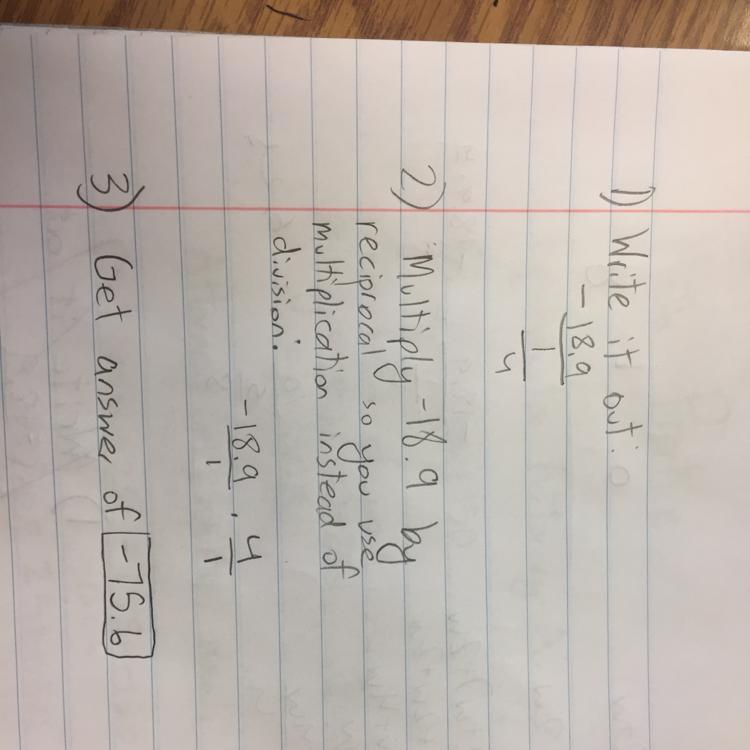 1) Write it out:
-18.9
1
4
2) Multiply -18.9 by
reciprocal so you use
multiplication instead of
division.
-18.9 · 4
1 1
3) Get answer of -75.6